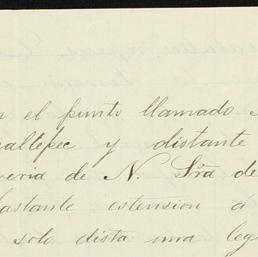 el punto llamado
altepec y distante
de N. Sra de
bastante estension a
solo dista una leg